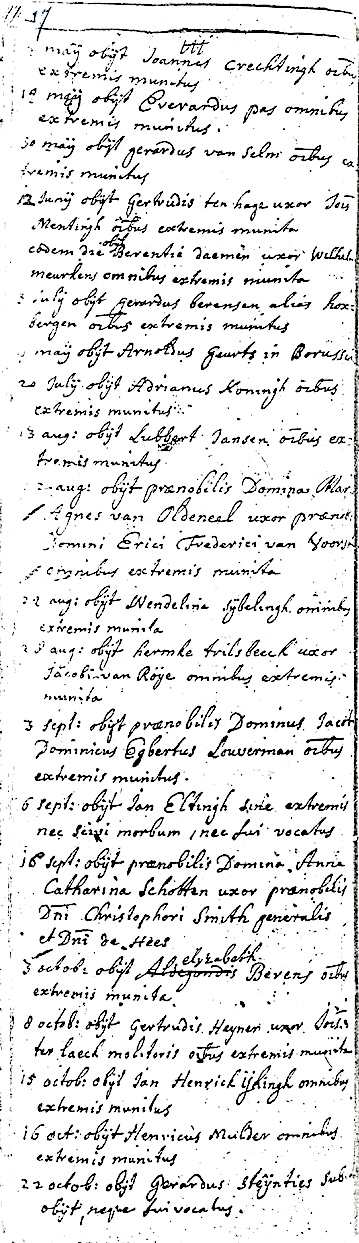 17
maÿ obÿt Joannes Crechtingh oibus
extremis munitus
19 maÿ obÿt Everardus pas omnibus
extremis munitus.
30 maÿ obÿt gerardus van Selm oibus ex
tremis munitus
12 Junÿ obÿt Gertrudis ten hage uxor Jois
Mentingh oibus extremis munita
eodem die obÿt Berentie daemen uxor Welhel
meurkens omnibus extremis munita
Julÿ obÿt gerardus berensen alias hox:
bergen oibus extremis munitus
maÿ obÿt Arnoldus Geurts in Borussia
20 Julÿ obÿt Adrianus Koningh oibus
extremis munitus
13 aug: obÿt Lubbert Jansen oibus ex-
tremis munitus
aug: obÿt prænobilis Domina Mar
Agnes van Oldeneel uxor prænob:
Domini Erici Frederici van Voorst
omnibus extremis munita
22 aug: obÿt Wendelina Sÿbelingh omnibus
extremis munita
28 aug: obÿt hermke trilsbeeck uxor
Jacobi van Röÿe omnibus extremis
munita
3 sept: obÿt prænobilis Dominus Jacob
Dominicus Egbertus Louverman oibus
extremis munitus.
6 sept: obÿt Jan Eltingh sine extremis
nec scivi morbum, nec fui vocatus
16 sept: obÿt prænobilis Domina Anna
Catharina Schotten uxor prænobilis
Dni Christophori Smith generalis
et Dni de Hees
3 octob: obÿt Aldegondis elyzabeth Berens oibus
extremis munita
8 octob: obÿt Gertrudis Heynen uxor Jois
ter laeck molitoris oibus extremis munita
15 octob: obÿt Jan Henrick Ijkingh omnibus
extremis munitus
16 oct: obÿt Henricus Mulder omnibus
extremis munitus
22 octob: obÿt Gerardus Steÿnties subito
obÿt, neque fui vocatus.